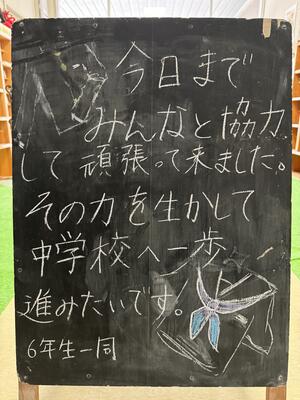 今日まで
みんなと協力
して頑張って来ました。
その力を生かして
中学校へ一歩
進みたいです。
6年生一同